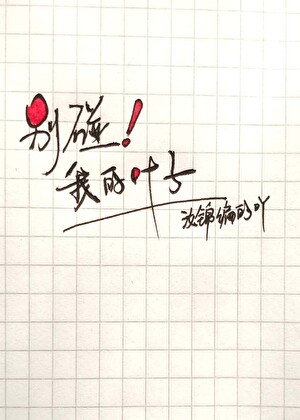 别碰！
我的叶子
汝锦编的吖